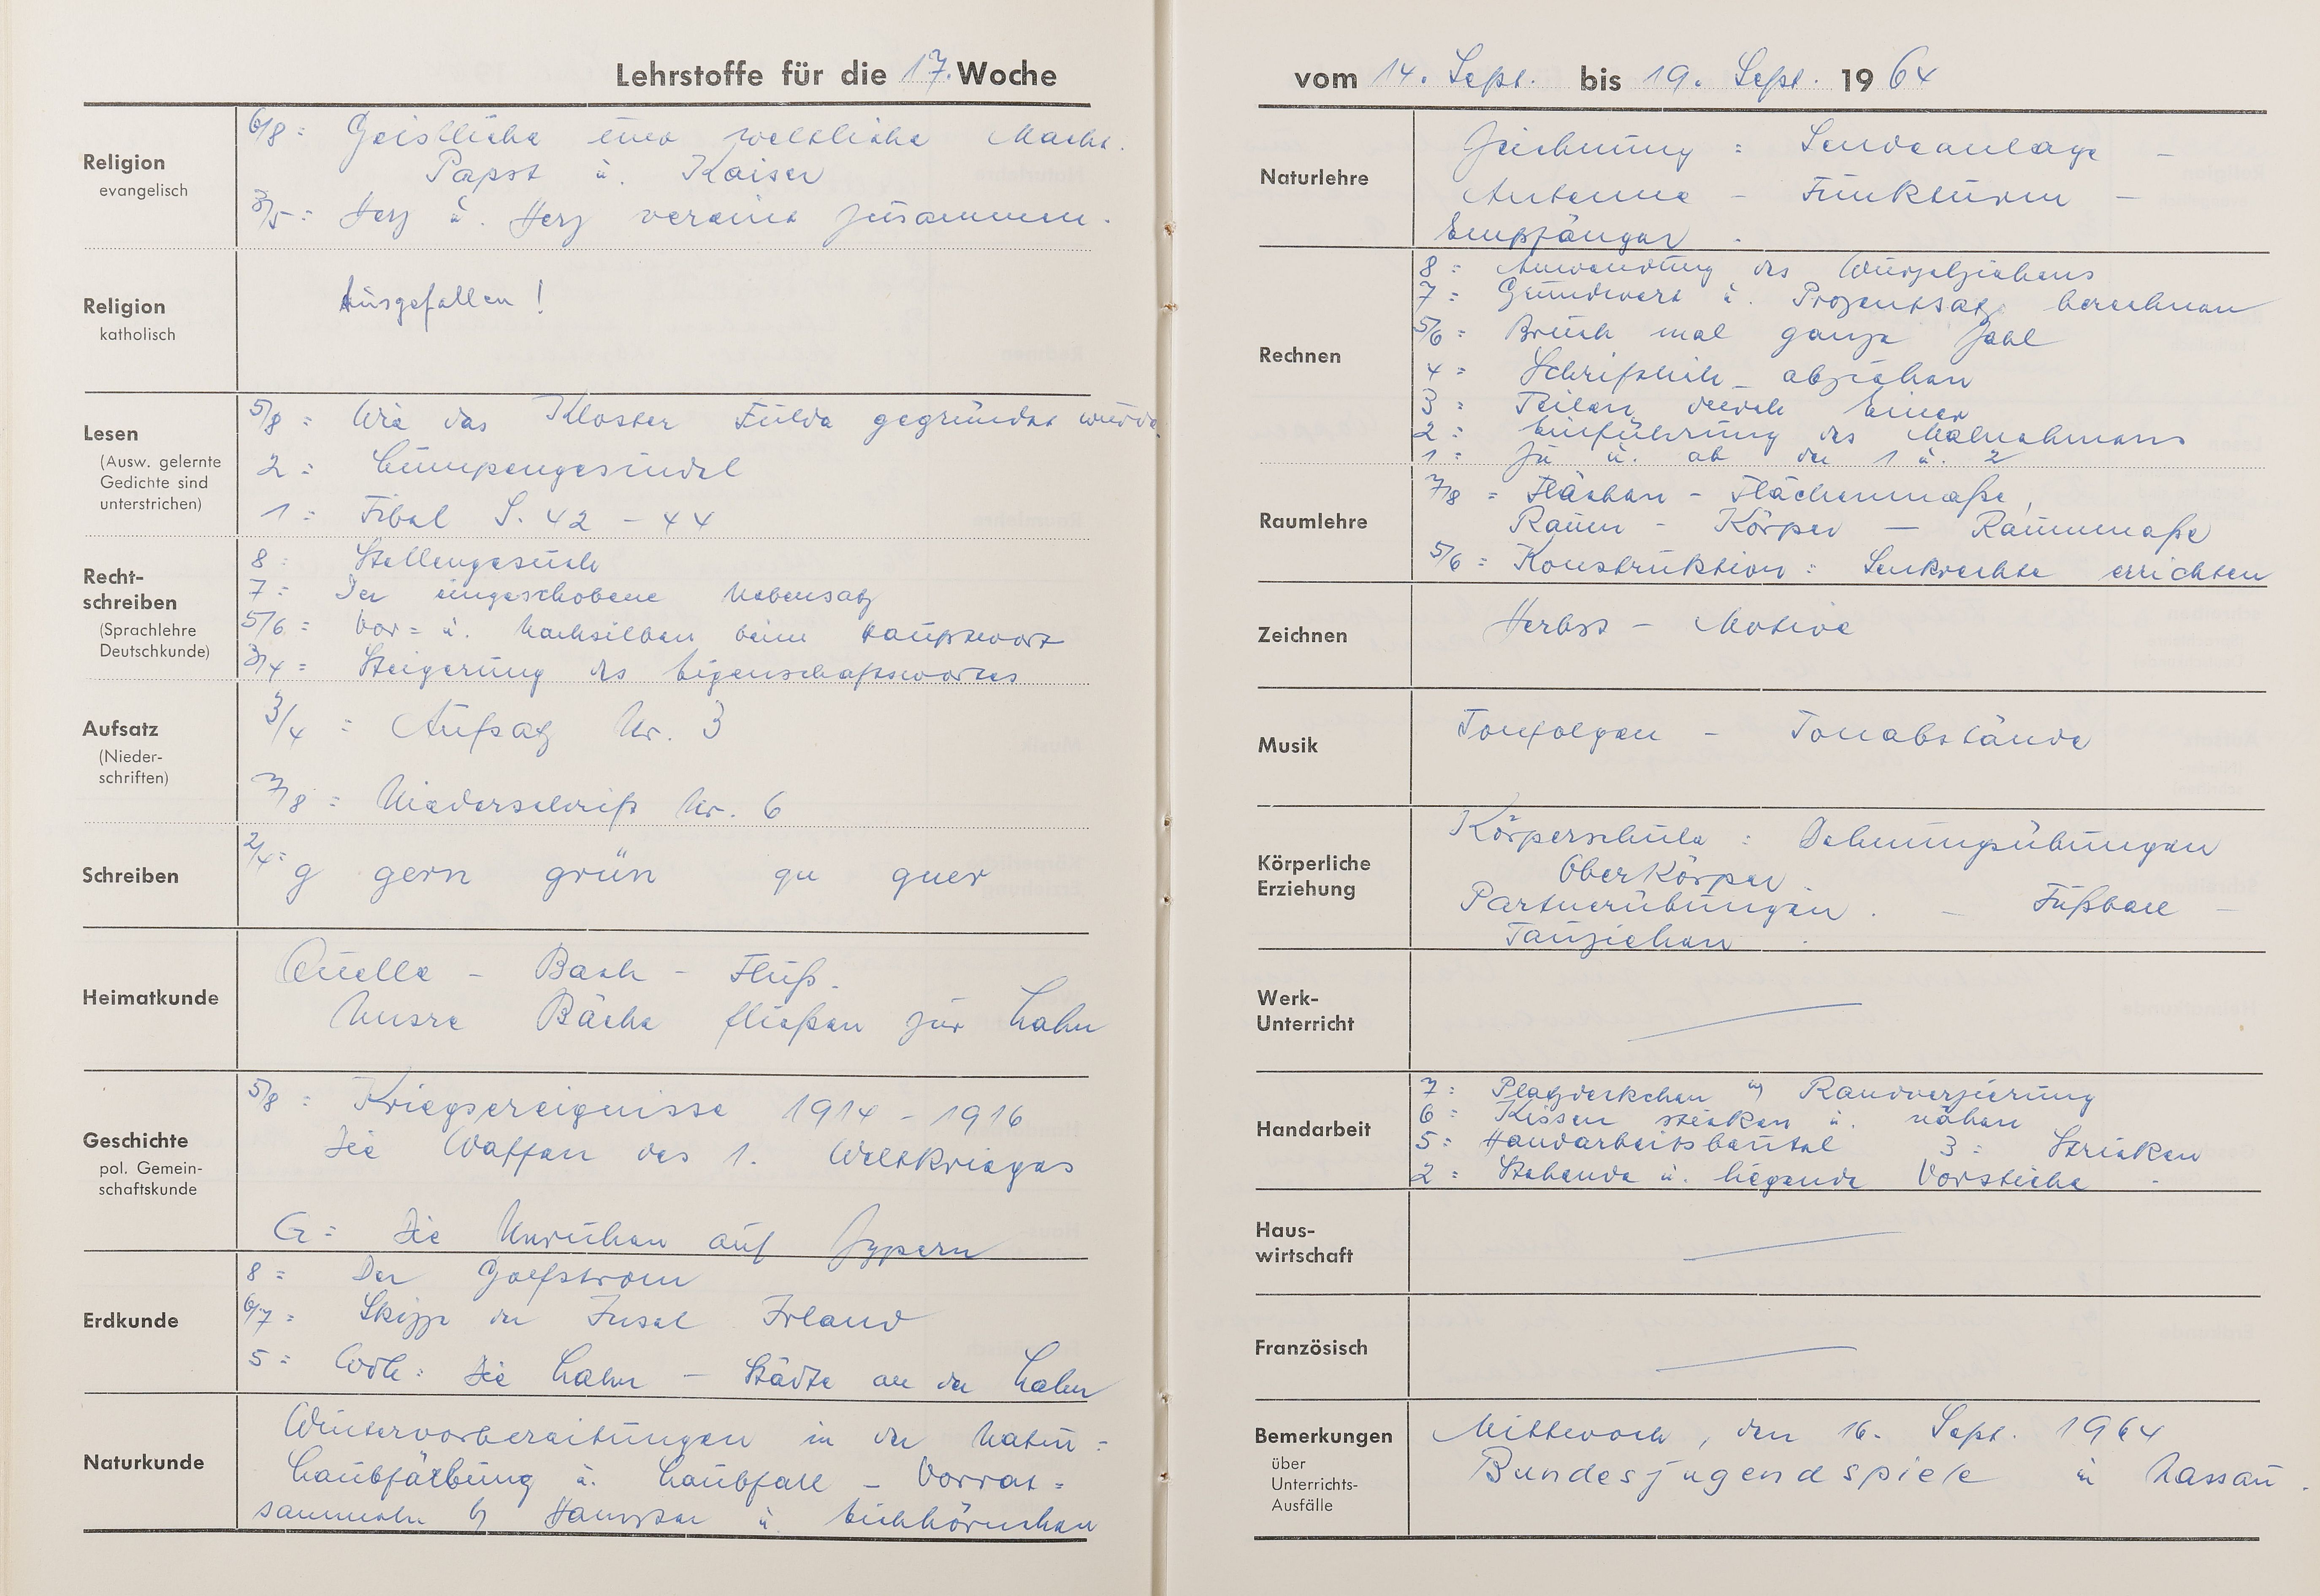 Lehrstoffe für die 17. Woche
Religion
evangelisch
6/8 = Geistliche und weltliche Macht.
Papst u. Kaiser
3/5 = Herz u. Herz vereint zusammen.
Religion
katholisch
Ausgefallen!
Lesen
(Ausw. gelernte
Gedichte sind
unterstrichen)
5/8 = Wie das Kloster Fulda gegründet wurde
2 = Lumpengesindel
1 = Fibel S. 42 - 44
Recht-
schreiben
(Sprachlehre
Deutschkunde)
8 = Stellengesuche
7 = Der eingeschobene Nebensatz
5/6 = Vor= u. Nachsilben beim Hauptwort
3/4 = Steigerung des Eigenschaftswortes
Aufsatz
(Nieder-
schriften)
3/4 = Aufsatz Nr. 3
7/8 = Niederschrift Nr. 6
Schreiben
2/4 = g gern grün qu quer
Heimatkunde
Quelle - Bach - Fluß.
Unsre Bäche fließen zur Lahn
Geschichte
pol. Gemein-
schaftskunde
5/8 = Kriegsereignisse 1914 - 1916
Die Waffen des 1. Weltkrieges
G = Die Unruhen auf Zypern
Erdkunde
8 = Der Golfstrom
6/7 = Skizze der Insel Irland
5 = Wdh: Die Lahn - Städte an der Lahn
Naturkunde
Wintervorbereitungen in der Natur =
Laubfärbung u. Laubfall - Vorrat =
sammeln b/ Hamster u. Eichhörnchen
vom 14. Sept. bis 19. Sept. 1964
Naturlehre
Zeichnung = Sendeanlage -
Antenne - Funkturm -
Empfänger.
Rechnen
8 = Anwendung des Wurzelziehens
7 = Grundwert u. Prozentsatz berechnen
5/6 = Bruch mal ganze Zahl
4 = Schriftlich abziehen
3 = Teilen durch Einer
2 = Einführung des Malnehmens
1 = Zu u. ab der 1 u. 2
Raumlehre
7/8 = Flächen - Flächenmaße,
Raum - Körper - Raummaße
5/6 = Konstruktion = Senkrechte errichten
Zeichnen
Herbst - Motive
Musik
Tonfolgen - Tonabstände
Körperliche
Erziehung
Körperschule = Dehnungsübungen
Oberkörper.
Partnerübungen. - Fußball -
Tauziehen.
Werk-
Unterricht
Handarbeit
7 = Platzdeckchen m/ Randverzierung
6 = Kissen sticken u. nähen
5 = Handarbeitsbeutel 3 = Stricken
2 = Stehende u. liegende Vorstiche.
Haus-
wirtschaft
Französisch
Bemerkungen
über
Unterrichts-
Ausfälle
Mittwoch, den 16. Sept. 1964
Bundesjugendspiele in Nassau.